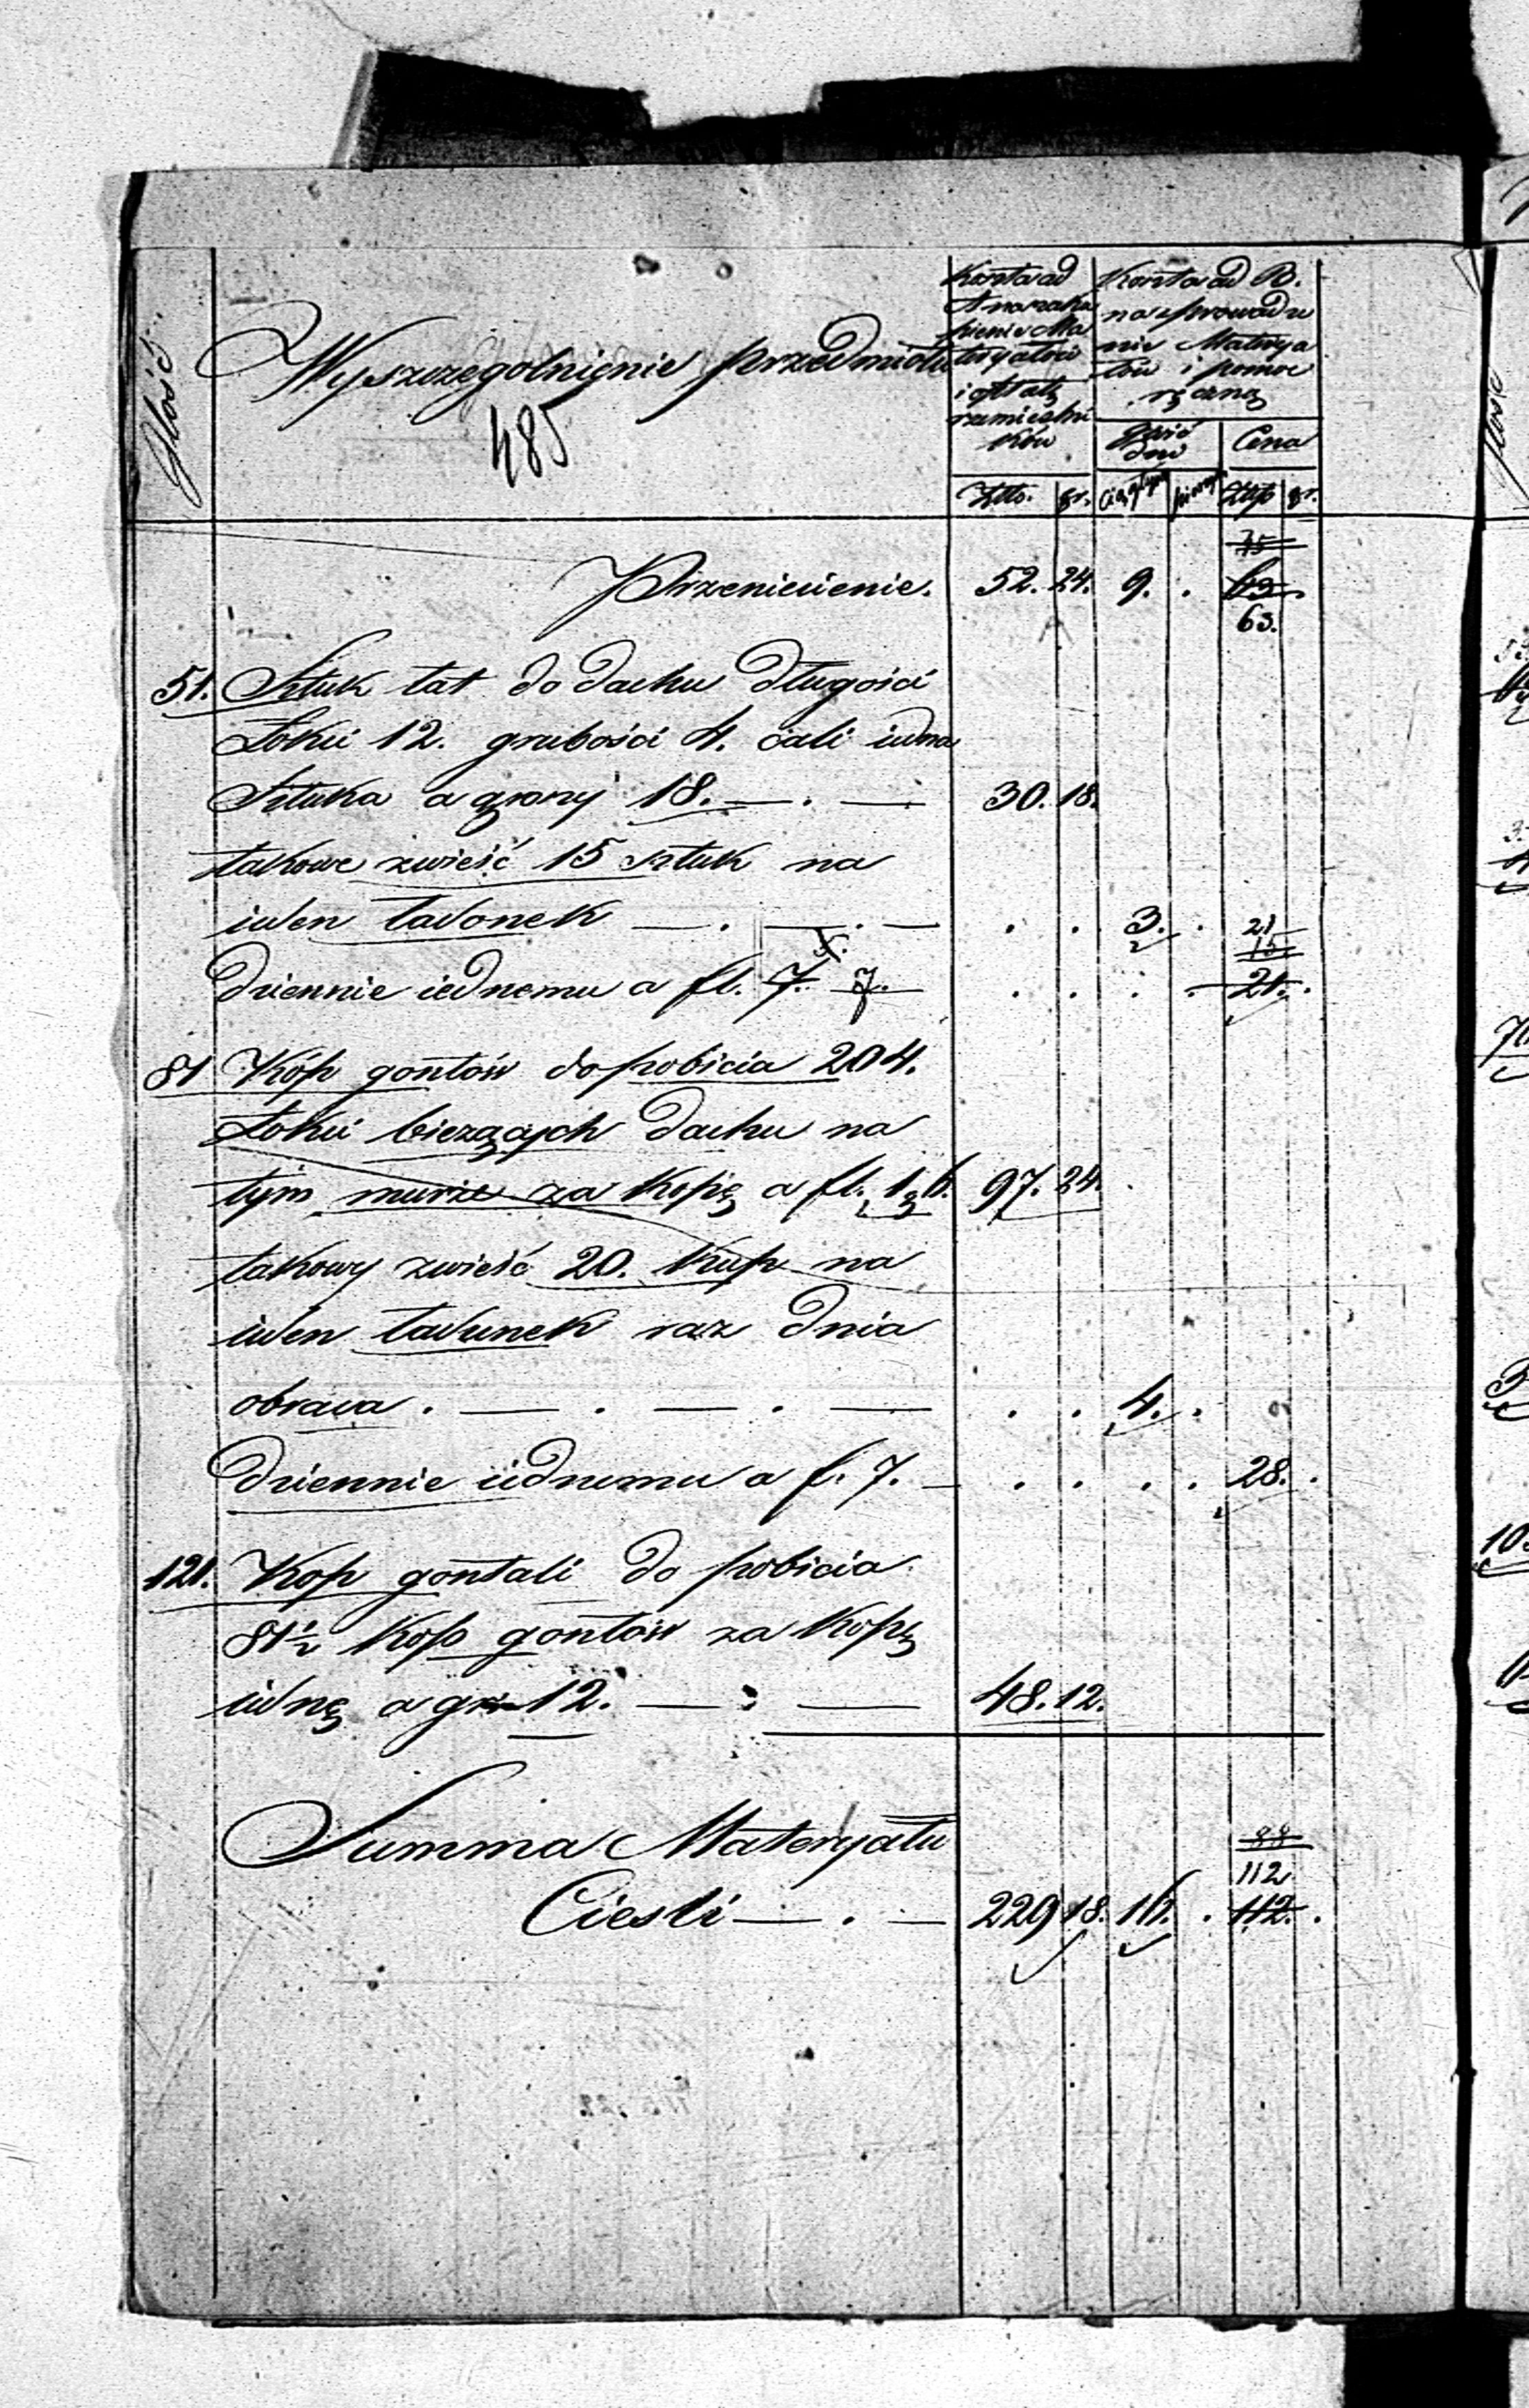 Ilość
Wyszczegolnienie przedmiotu
485
Koszta ad
A na zaku
pienie Ma
teryałow
i opłatę
rzemieslni
ków
Koszta ad B.
na sprowadze
nie Materya
łow i pomoc
ręczną
Ilość
dni
Cena
Złto. gr. ciągłych pieszych Złtp gr.
75
Przeniesienie. 52. 24. 9. . 63.
63.
51. Sztuk łat do dachu długości
Łokci 12. grubości 4. cali iedna
Sztuka a groszy 18. — . — 30. 18.
takowe zwieść 15 sztuk na
ieden ładonek — . — . — . . 3. . 21
15
dziennie iednemu a fl. 7. 7. . . . . 21. .
81 Kóp gontów do pobicia 204.
Łokci bieżących dachu na
tym murze za Kopę a fl. 1 g 6. 97. 24.
takowy zwieść 20. Kup na
ieden ładunek raz dnia
obraca . — . — . — . . 4. .
dziennie iednemu a f. 7. — . . . . 28. .
121. Kop gontali do pobicia
81½ Kop gontów za Kopę
iednę a gr 12. — : — 48. 12.
Summa Materyału
88
112
Cieśli — . — 229 18. 16. . 112. .